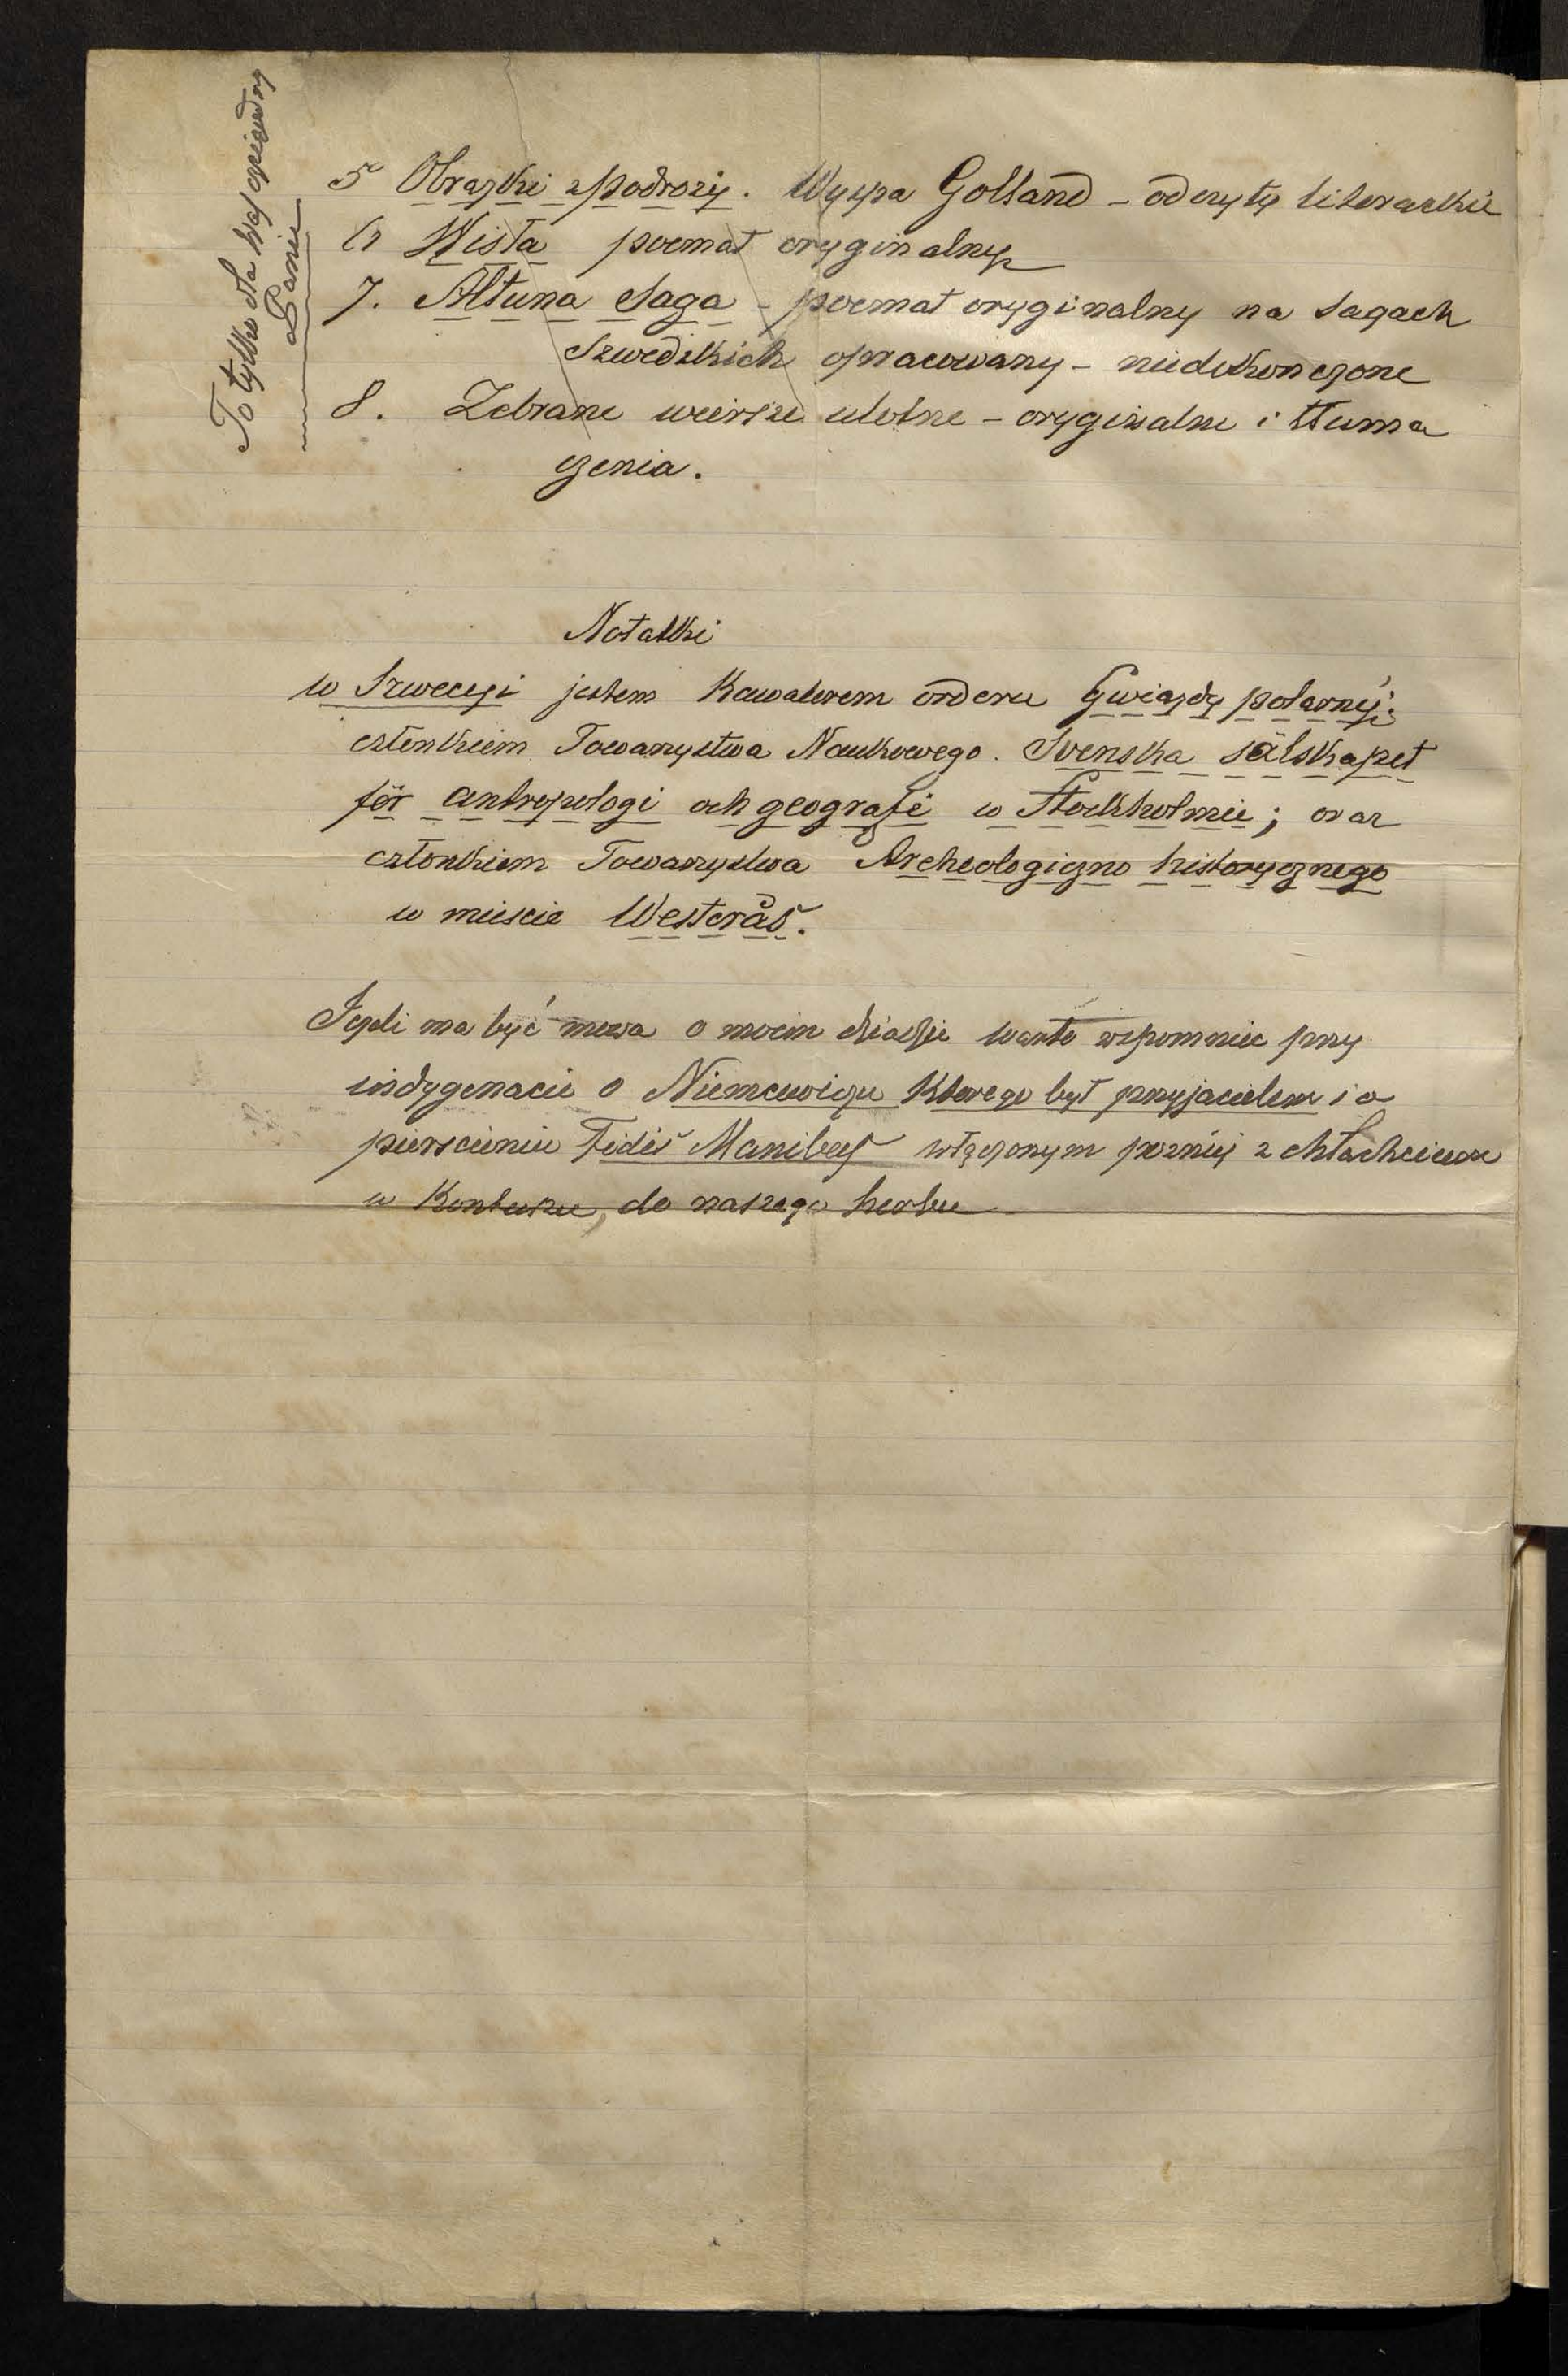 To tylko dla Was
Panie
5 Obrazki z podrozy. Wyspa Gotland – odczyty literackie
6 Wisła poemat oryginalny
7. Altuna Saga – poemat oryginalny na sagach
szwedzkich opracowany – niedokonczone
8. Zebrane wiersze ulotne – oryginalne i tłuma
czenia.
Notatki
w Szwecyi jestem Kawalerem orderu Gwiazdy polarnéj;
członkiem Towarzystwa Naukowego. Svenska sälskapet
för antropologi och geografi w Stockholmie; oraz
członkiem Towarzystwa Archeologiczno historycznego
w miescie Westerås.
Jezli ma być mowa o moim dziadzie warto wspomniec przy
indygenacie o Niemcewiczu Ktorego był przyjacielem i o
pierscieniu Fidis Manibus włączonym pozniéj z chłachcicem
w Kontuszu, do naszego herbu